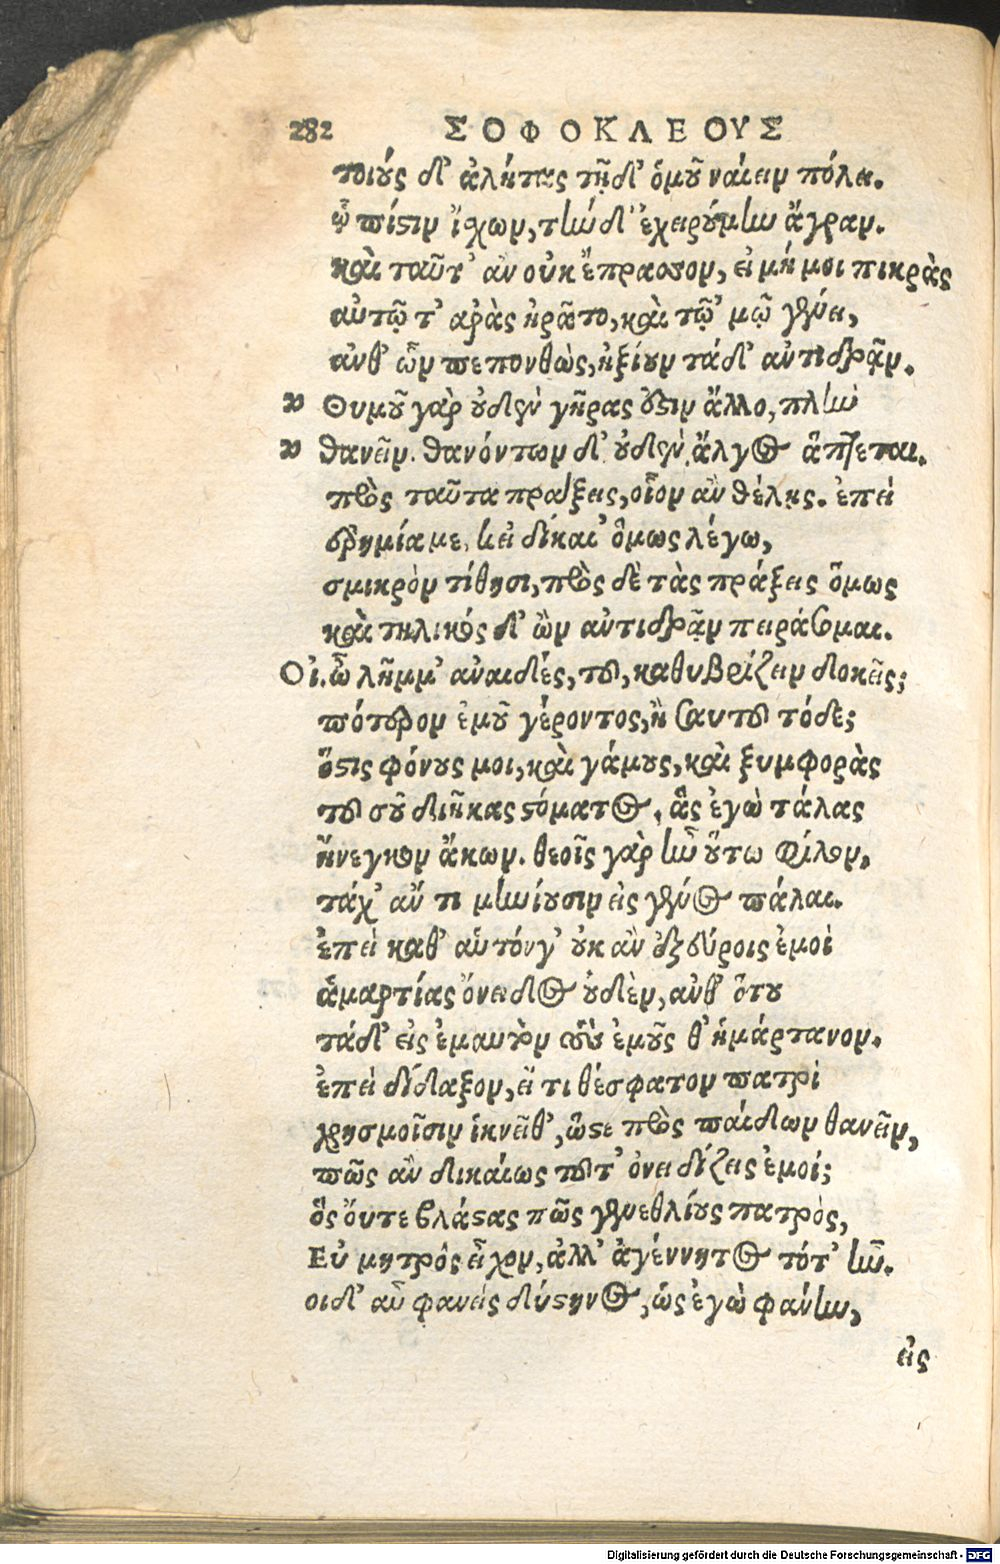 282 ΣΟΦΟΚΛΕΟΥΣ
τοιούς δ' ἀλήτας τῇδ' ὁμοῦ ναίειν πόλει.
ᾧ πίστιν ἴσχων, τὴν δ' ἐχειρούμην ἄγραν.
καὶ ταῦτ' ἂν οὐκ ἔπρασσον, εἰ μή μοι πικρὰς
αὑτῷ τ' ἀρὰς ἠρᾶτο, καὶ τῷ 'μῷ γένει,
ἀνθ' ὧν πεπονθὼς, ἠξίουν τάδ' ἀντιδρᾷν.
" Θυμοῦ γὰρ οὐδὲν γῆρας ἔστιν ἄλλο, πλὴν
" θανεῖν. θανόντων δ' οὐδὲν ἄλγος ἅπτεται.
πρὸς ταῦτα πράξεις, οἷον ἂν θέλῃς. ἐπεὶ
ἐρημία με, κεἰ δίκαι' ὅμως λέγω,
σμικρὸν τίθησι, πρὸς δὲ τὰς πράξεις ὅμως
καὶ τηλικόσδ' ὢν ἀντιδρᾷν πειράσομαι.
Οἰ. ὦ λῆμμ' ἀναιδές, τοῦ, καθυβρίζειν δοκεῖς;
πότερον ἐμοῦ γέροντος, ἢ σαυτοῦ τόδε;
ὅστις φόνους μοι, καὶ γάμους, καὶ ξυμφορὰς
τοῦ σοῦ διῆκας στόματος, ἃς ἐγὼ τάλας
ἤνεγκον ἄκων. θεοῖς γὰρ ἦν οὕτω φίλον,
τάχ' ἄν τι μηνίουσιν εἰς γένος πάλαι.
ἐπεὶ καθ' αὑτόν γ' οὐκ ἂν ἐξεύροις ἐμοὶ
ἁμαρτίας ὄνειδος οὐδὲν, ἀνθ' ὅτου
τάδ' εἰς ἐμαυτὸν τοὺς ἐμούς θ' ἡμάρτανον.
ἐπεὶ δίδαξον, εἴ τι θέσφατον πατρὶ
χρησμοῖσιν ἱκνεῖθ', ὥστε πρὸς παίδων θανεῖν,
πῶς ἂν δικαίως τοῦτ' ὀνειδίζεις ἐμοί;
ὃς οὔτε βλάστας πῶς γενεθλίους πατρὸς,
Εὐ μητρὸς εἶχον, ἀλλ' ἀγέννητος τότ' ἦν.
οιδ' αὖ φανεὶς δύστηνος, ὡς ἐγὼ φάνην,
εἰς
Digitalisierung gefördert durch die Deutsche Forschungsgemeinschaft - DFG